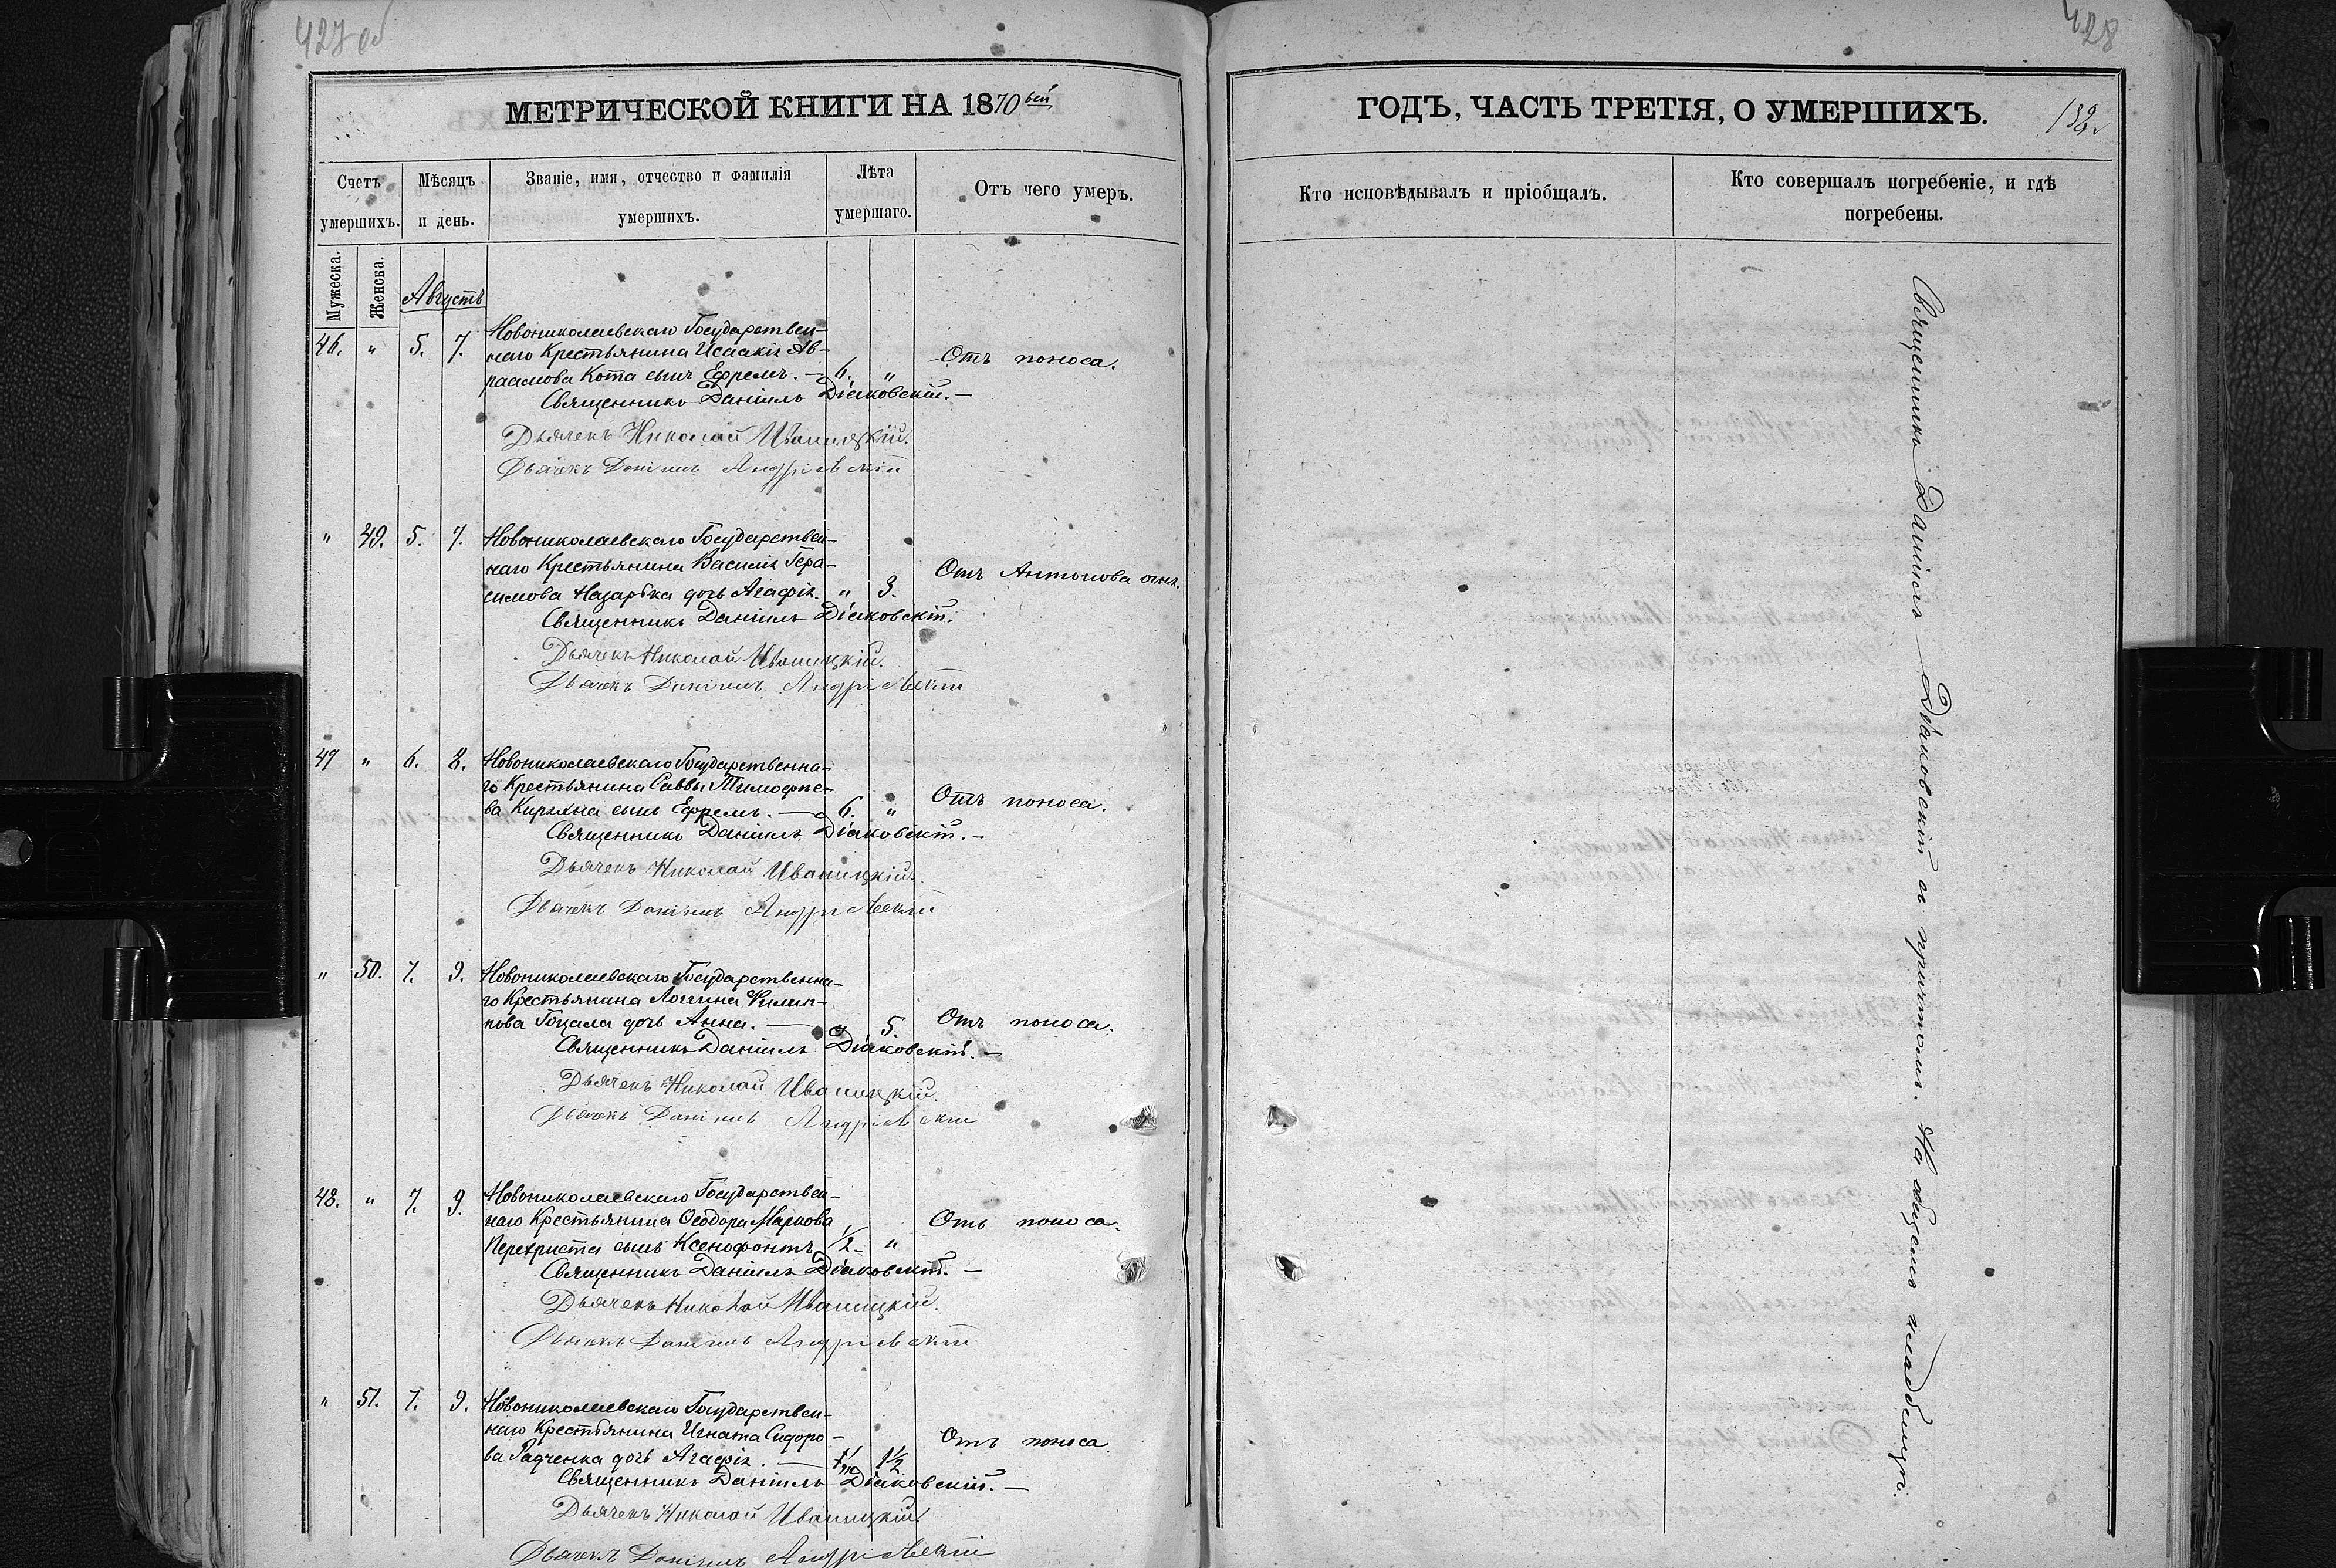 427 об
428
МЕТРИЧЕСКОЙ КНИГИ НА 1870
ГОДЪ, ЧАСТЬ ТРЕТІЯ, О УМЕРШИХЪ.
Счетъ умершихъ.
Мѣсяцъ и день.
Званіе, имя, отчество и фамилія умершихъ.
Лѣта умершаго.
Отъ чего умеръ.
Кто исповѣдывалъ и пріобщалъ.
Кто совершалъ погребеніе, и гдѣ погребены.
Мужеска.
Женска.
Августъ
46. " 5. 7. Новониколаевскаго Государствен-
наго Крестьянина Исаакія Ав-
раамова Кота сынъ Ефремъ. — 6. " Отъ поноса.
Священникъ Даніилъ Діаковскій. —
Дьячекъ Николай Иваницкій.
Дьячекъ Даніилъ Андріевскій
" 49. 5. 7. Новониколаевскаго Государствен-
наго Крестьянина Василія Гера-
симова Назарька дочь Агафія. " 3. Отъ Антонова огня.
Священникъ Даніилъ Діаковскій.
Дьячекъ Николай Иваницкій.
Дьячекъ Даніилъ Андріевскій
47 " 6. 8. Новониколаевскаго Государственна-
го Крестьянина Саввы Тимофѣе-
ва сынъ Ефремъ. — 6. " Отъ поноса.
Священникъ Даніилъ Діаковскій. —
Дьячекъ Николай Иваницкій.
Дьячекъ Даніилъ Андріевскій
" 50. 7. 9. Новониколаевскаго Государственна-
го Крестьянина Логгина Филип-
пова Гоцала дочь Анна. — 5. Отъ поноса.
Священникъ Даніилъ Діаковскій. —
Дьячекъ Николай Иваницкій.
Дьячекъ Даніилъ Андріевскій
48. " 7. 9. Новониколаевскаго Государствен-
наго Крестьянина Ѳеодора Маркова
Перехриста сынъ Ксенофонтъ 1/2 - " Отъ поноса.
Священникъ Даніилъ Діаковскій. —
Дьячекъ Николай Иваницкій.
Дьячекъ Даніилъ Андріевскій
" 51. 7. 9. Новониколаевскаго Государствен-
наго Крестьянина Игната Сидоро-
ва Радченка дочь Агафія. — 1 1/2 Отъ поноса
Священникъ Даніилъ Діаковскій. —
Дьячекъ Николай Иваницкій.
Дьячекъ Даніилъ Андріевскій
Священникъ Даніилъ Діаковскій съ причтомъ. На общемъ кладбищѣ.